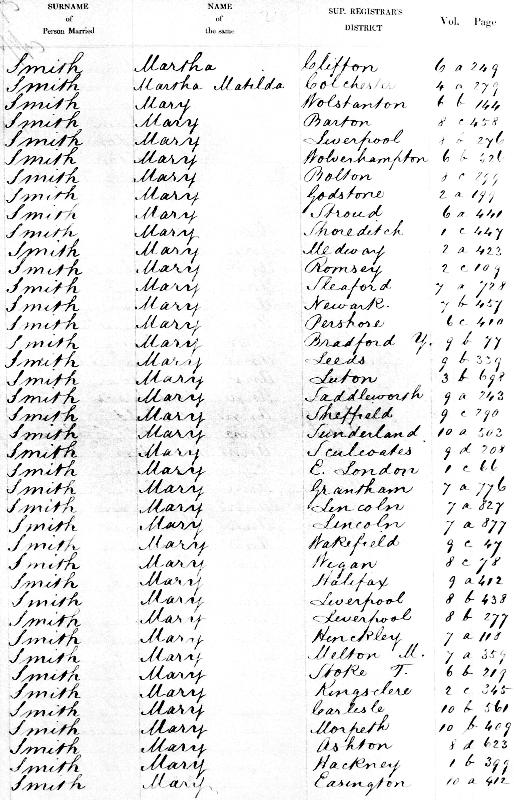 SURNAME of Person Married NAME of the same SUP. REGISTRAR'S DISTRICT Vol. Page
Smith Martha Clifton 6 a 249
Smith Martha Matilda Colchester 4 a 279
Smith Mary Wolstanton 6 b 144
Smith Mary Barton 8 c 458
Smith Mary Liverpool 8 b 276
Smith Mary Wolverhampton 6 b 526
Smith Mary Bolton 8 c 299
Smith Mary Godstone 2 a 199
Smith Mary Stroud 6 a 441
Smith Mary Shoreditch 1 c 447
Smith Mary Medway 2 a 423
Smith Mary Romsey 2 c 109
Smith Mary Sleaford 7 a 728
Smith Mary Newark. 7 b 457
Smith Mary Pershore 6 c 410
Smith Mary Bradford Y. 9 b 77
Smith Mary Leeds 9 b 339
Smith Mary Luton 3 b 698
Smith Mary Saddleworth 9 a 243
Smith Mary Sheffield 9 c 290
Smith Mary Sunderland 10 a 503
Smith Mary Sculcoates 9 d 208
Smith Mary E. London 1 c 66
Smith Mary Grantham 7 a 776
Smith Mary Lincoln 7 a 827
Smith Mary Lincoln 7 a 877
Smith Mary Wakefield 9 c 47
Smith Mary Wigan 8 c 78
Smith Mary Halifax 9 a 412
Smith Mary Liverpool 8 b 438
Smith Mary Liverpool 8 b 277
Smith Mary Hinckley 7 a 118
Smith Mary Melton M. 7 a 359
Smith Mary Stoke T. 6 b 219
Smith Mary Kingsclere 2 c 345
Smith Mary Carlisle 10 b 561
Smith Mary Morpeth 10 b 409
Smith Mary Ashton 8 d 623
Smith Mary Hackney 1 b 399
Smith Mary Easington 10 a 412